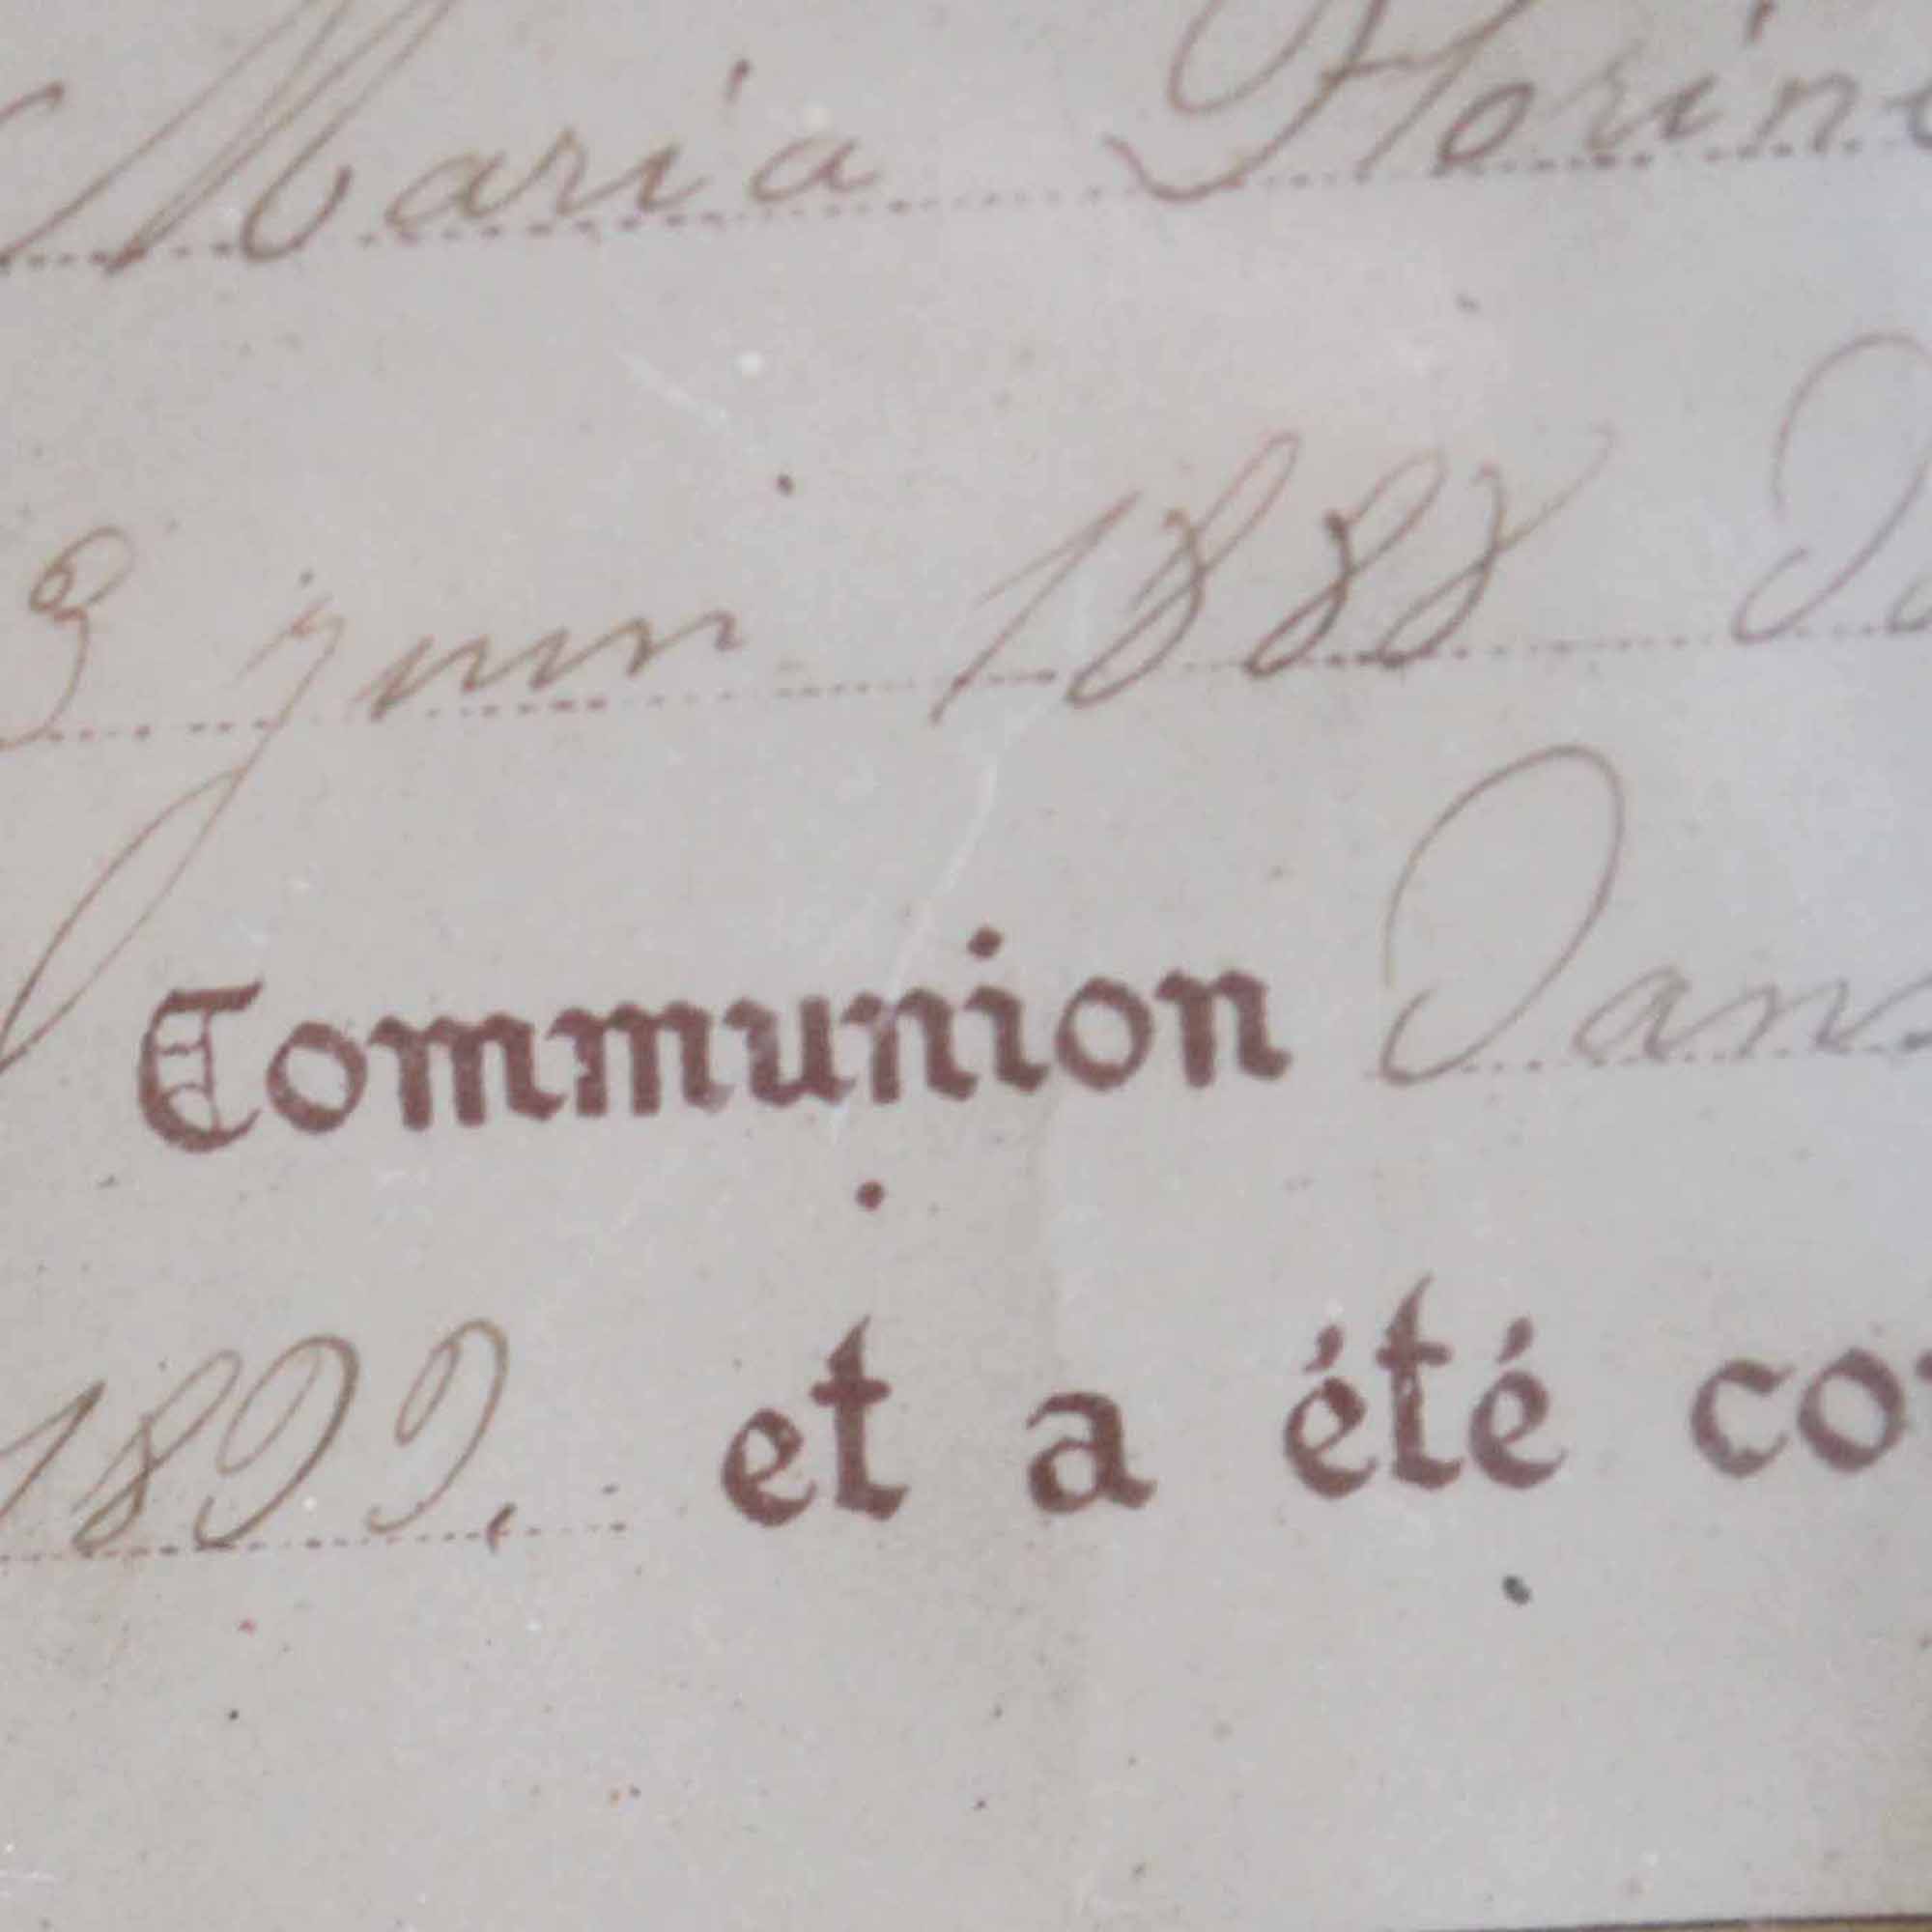 Maria Florine
3 juin 1888
Communion Dans
1899. et a été